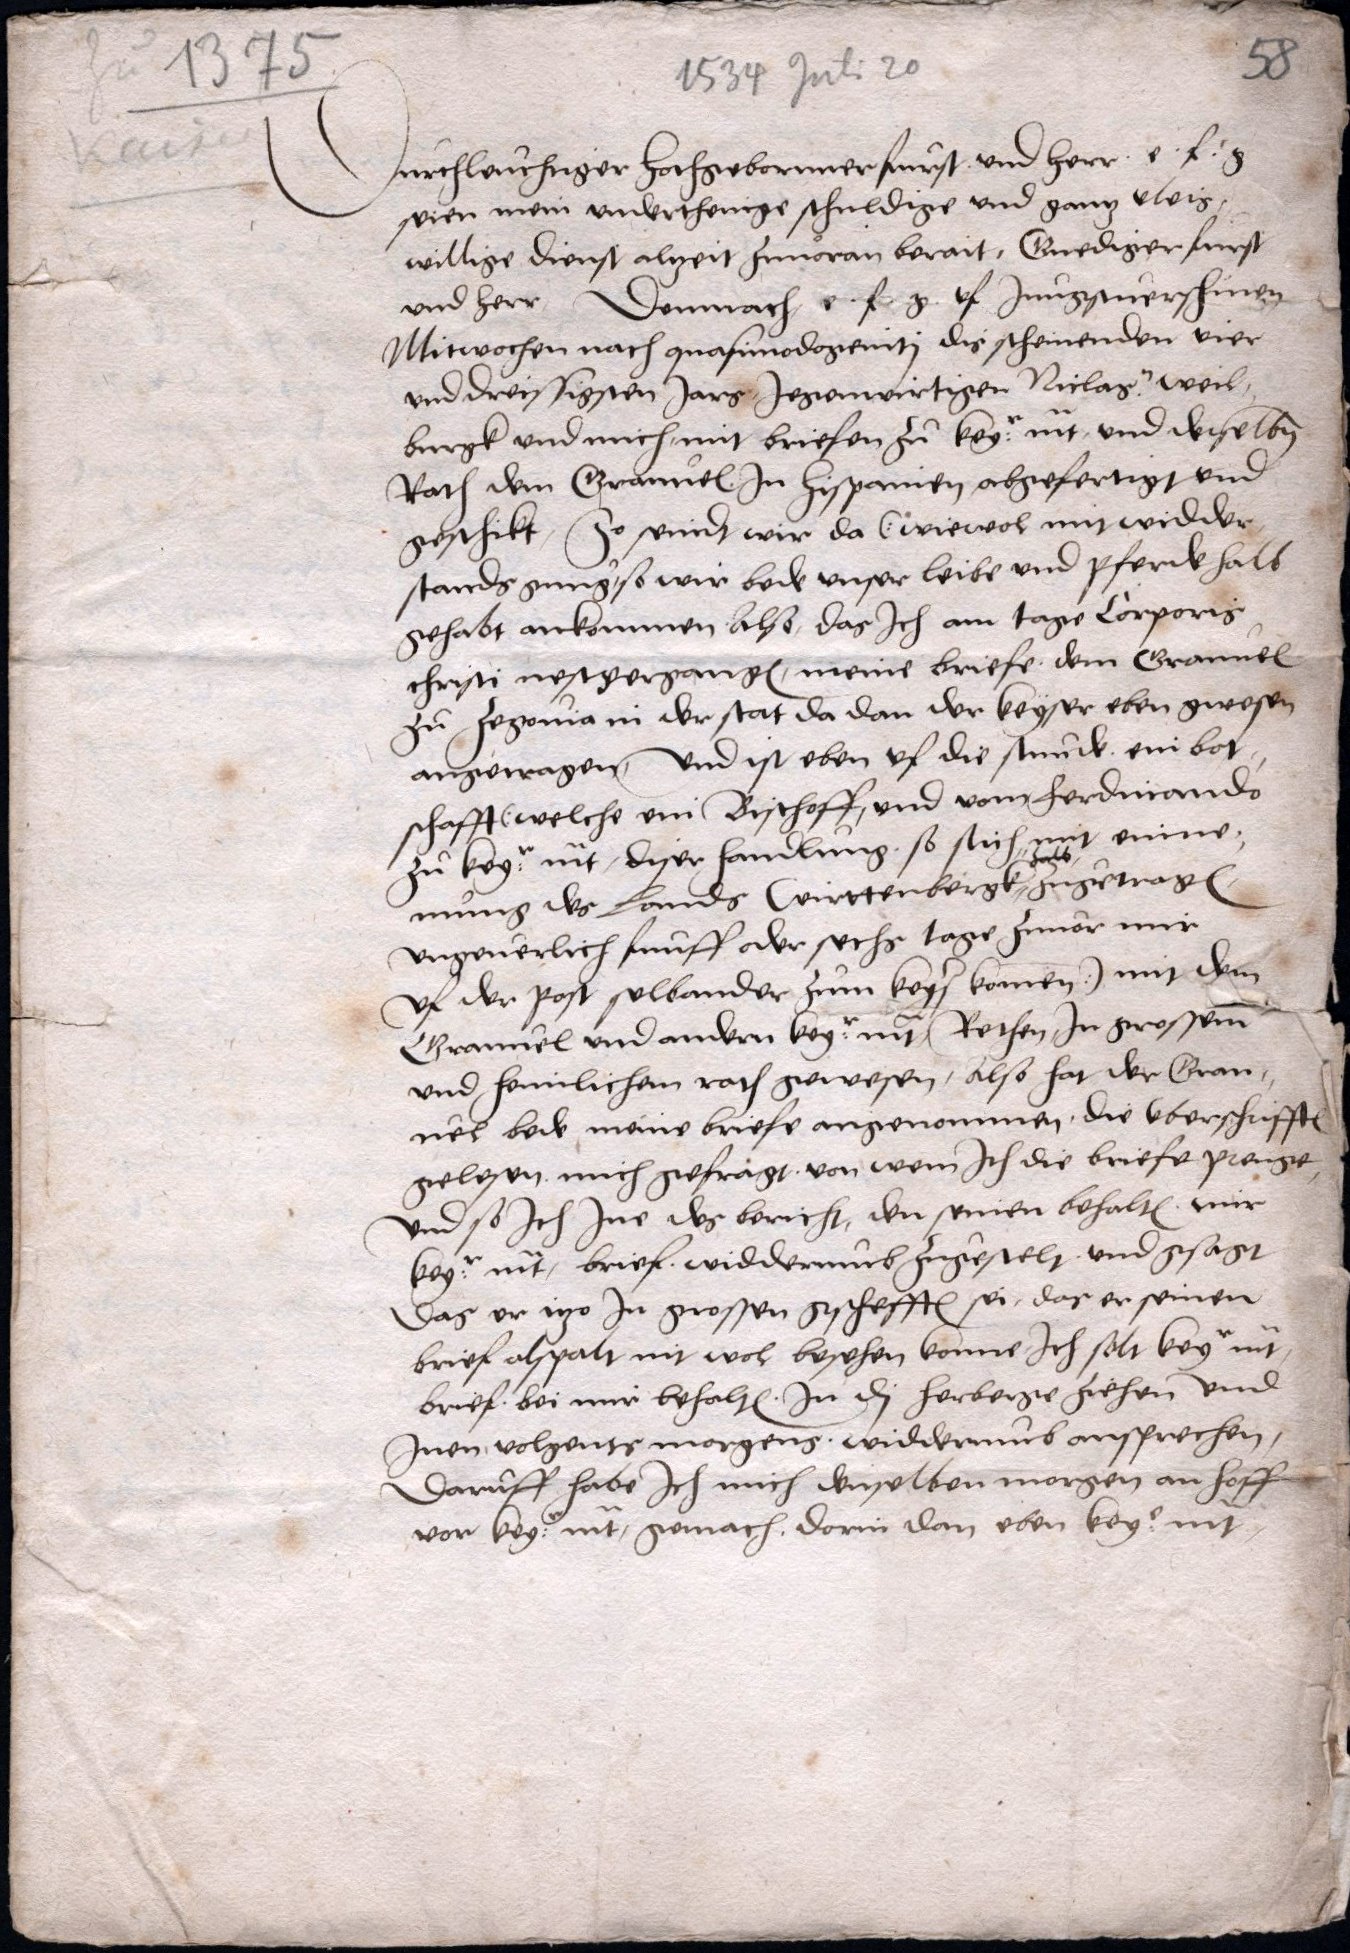 zu 1375
Kaiser
1534 Juli 20
58
Durchleuchtiger hochgebornner furst und herr e. f. g
seien mein underthenige schuldige und gantz vleis,
willige dienst alzeit zuuoran berait, Gnediger furst
und herr Demnach e. f. g. uf Jungstuerschinen
Mitwochen nach quasimodogeniti dis scheinenden vier
und dreissigsten Jars Jegenwirtigen Niclas Weil,
burgk und mich mit briefen zu key:r mt und derselbn
Rath dem Granuel In Hispanien abgefertigt und
geschikt, So seindt wir da (: wiewol mit widder,
stands gnug so wir bede unser leibe und pferde halb
gehabt ankommen Also, das Ich am tage Corporis
christi nestvergangen, meine briefe dem Granuel
zu Segouia in der stat da dan der keyser eben gwesen
angetragen, Und ist eben uf die stunde ein bot,
schafft (: welche ein Bischoff, und vom Ferdinando
zu key:r mt, diser handlung so sich mit einne,
mung des Lands Wirttenbergk halb zugetragen
ungeuerlich funff oder sechs tage zuuor mir
uf der post selbander zum keyser komen :) mit dem
Granuel und andern key:r mt Rethen In grossem
und heimlichem rath gewesen, Also hat der Gran,
uel bede meine briefe angenommen die uberschrifften
gelesen mich gefragt von wem Ich die briefe prenge,
und so Ich Ine des bericht, den seinen behalten mir
key:r mt, brief widderumb zugestelt und gesagt
Das er itzo In grossen gescheften sei, das er seinen
brief alspalt nit wol besehen konne Ich solt key:r mt,
brief bei mir behalten In die herberge ziehen und
Inen volgents morgens widderumb ansprechen,
Daruff habe Ich mich denselben morgen an hoff
vor key:r mt, gemach, dorin dan eben key:r mt